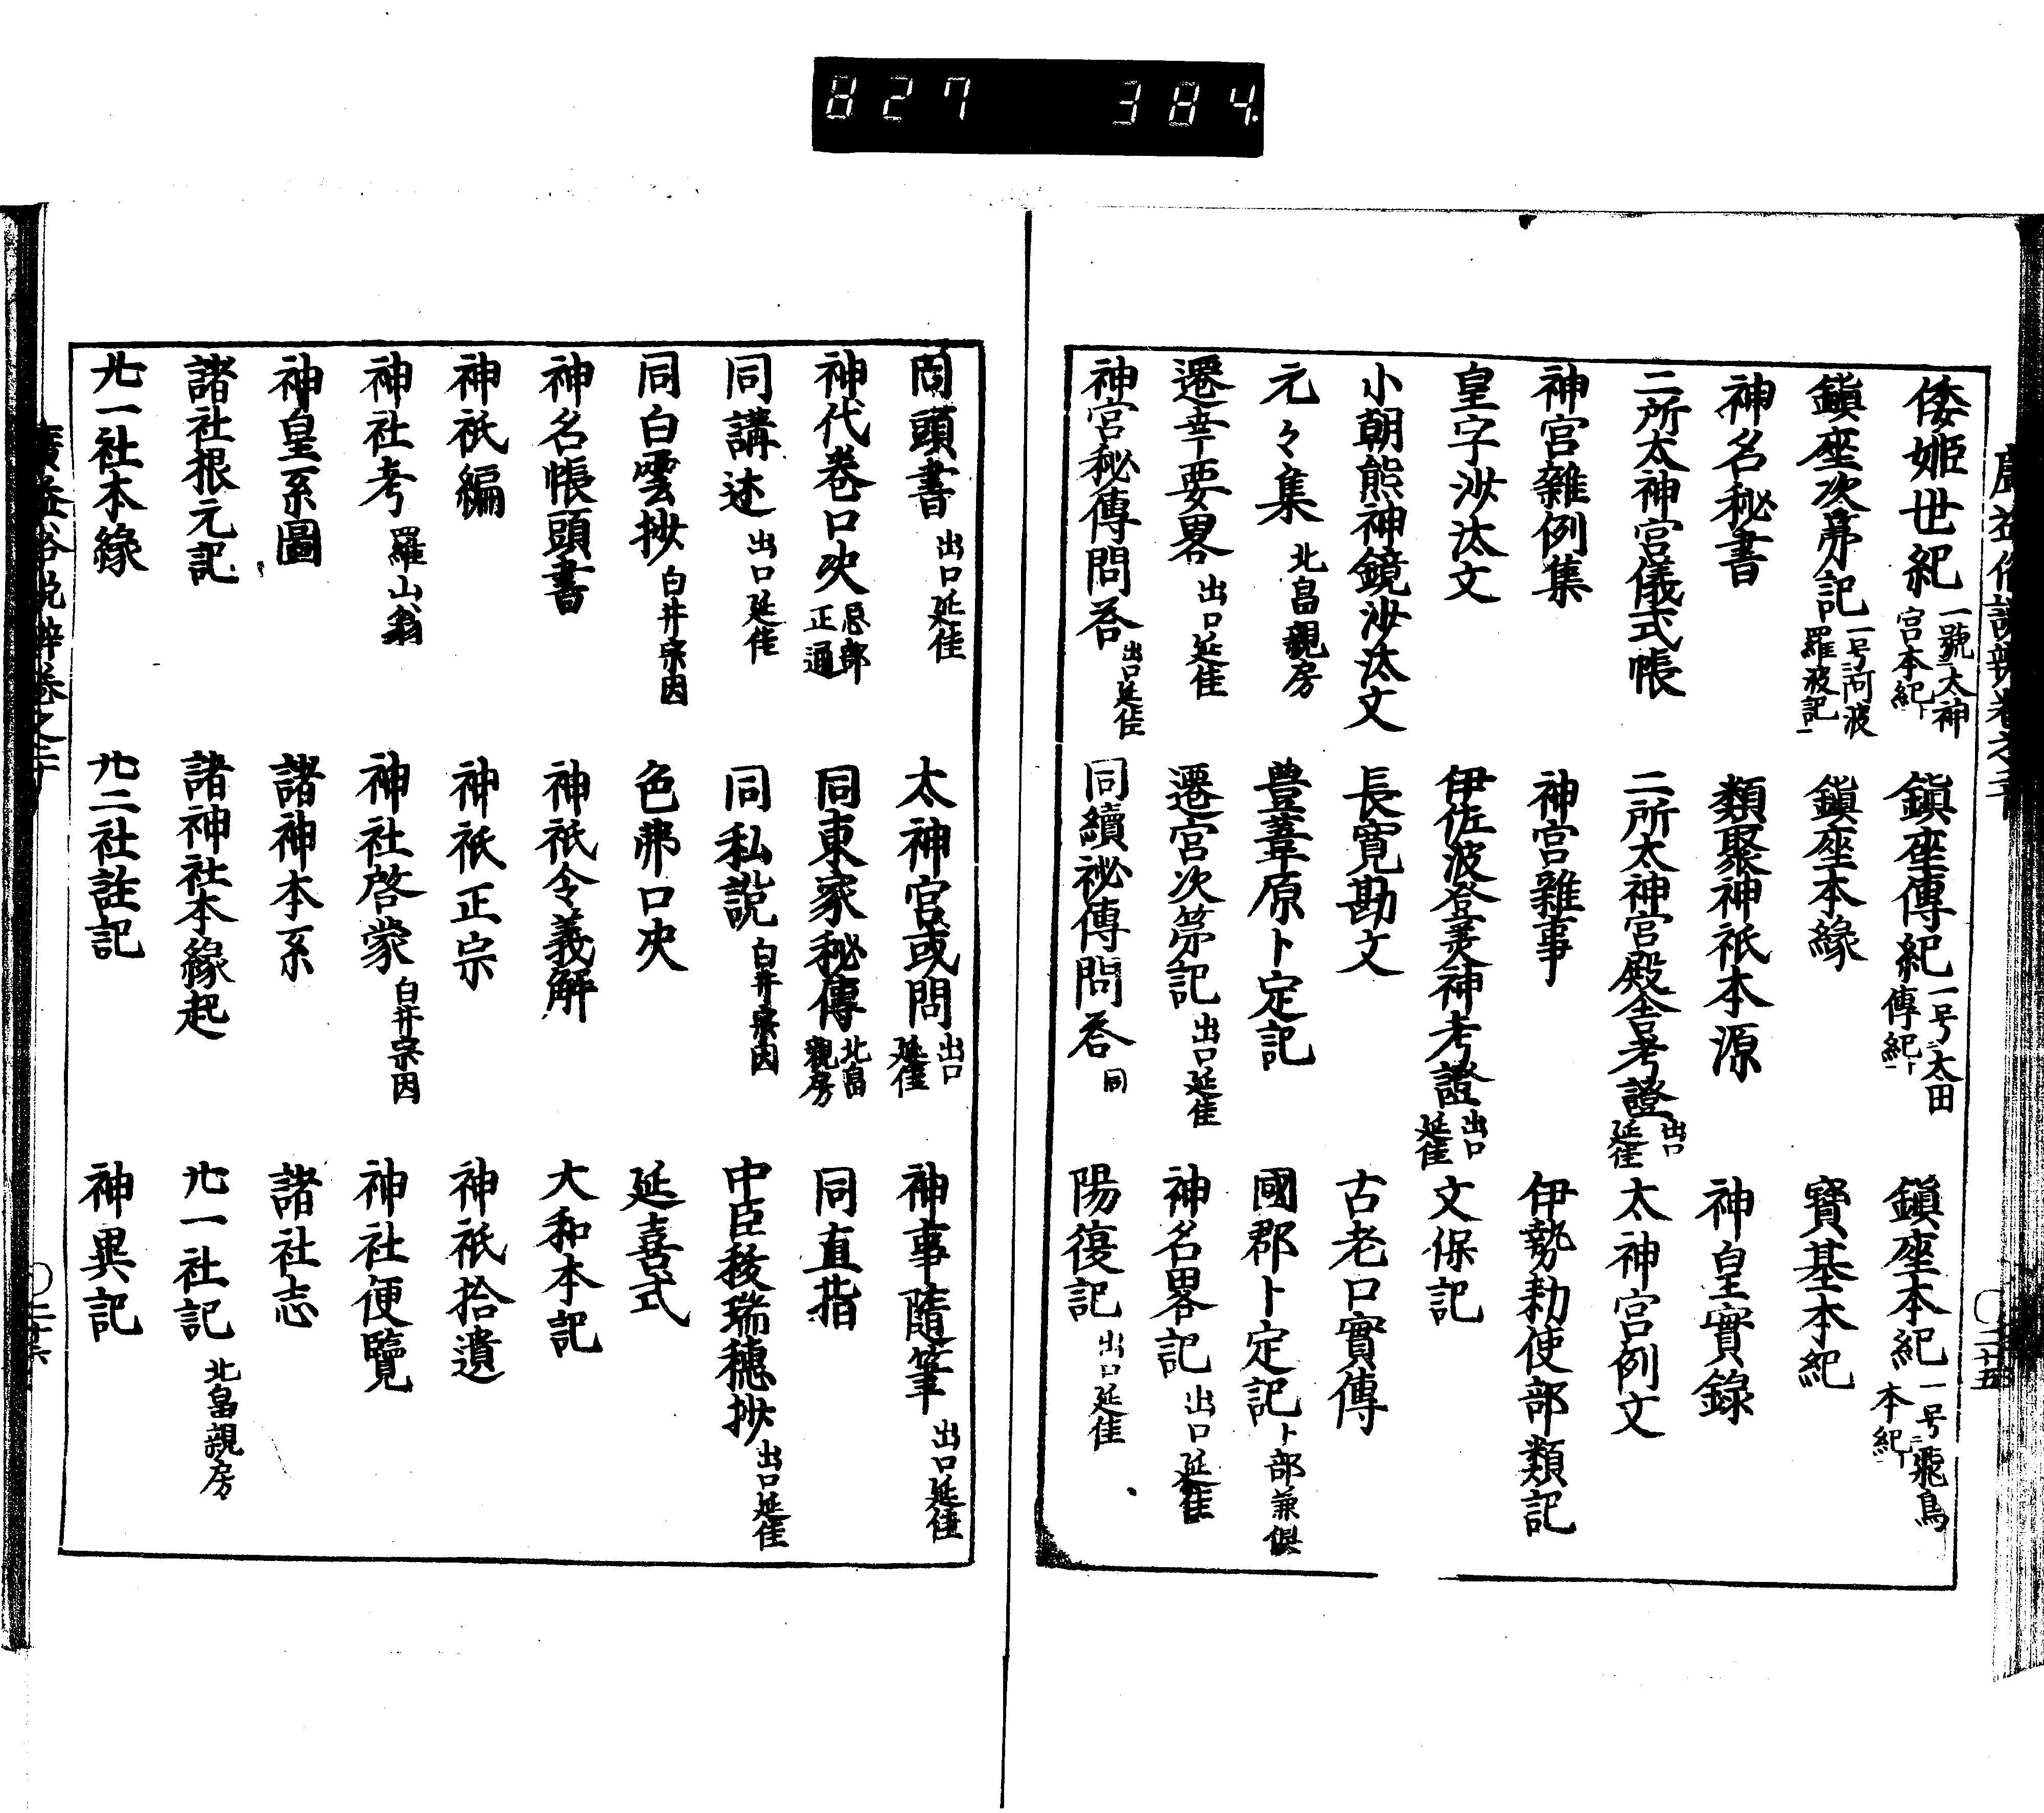 827 384
倭姫世紀 一號太神宮本紀 鎮座傳紀 一号太田傳紀 鎮座本紀 一号飛鳥本紀
鎮座次第記 一号阿波羅波記 鎮座本縁 寳基本紀
神名秘書 類聚神祇本源 神皇實錄
二所太神宮儀式帳 二所太神宮殿舎考證 出口延佳 太神宮例文
神宮雜例集 神宮雜事 伊勢勅使部類記
皇字沙汰文 伊佐波登美神考證 出口延佳 文保記
小朝熊神鏡沙汰文 長寛勘文 古老口實傳
元々集 北畠親房 豊葦原卜定記 國郡卜定記 卜部兼倶
遷幸要畧 出口延佳 遷宮次第記 出口延佳 神名畧記 出口延佳
神宮秘傳問荅 出口延佳 同續祕傳問荅 同 陽復記 出口延佳
同頭書 出口延佳 太神宮或問 出口延佳 神事隨筆 出口延佳
神代巻口决 忌部正通 同東家秘傳 北畠親房 同直指
同講述 出口延佳 同私說 白井宗因 中臣祓瑞穗抄 出口延佳
同白雲抄 白井宗因 色弗口决 延喜式
神名帳頭書 神祇令義解 大和本記
神祇編 神祇正宗 神祇拾遺
神社考 羅山翁 神社啓蒙 白井宗因 神社便覽
神皇系圖 諸神本系 諸社志
諸社根元記 諸神社本縁起 廿一社記 北畠親房
廿一社本縁 廿二社註記 神異記